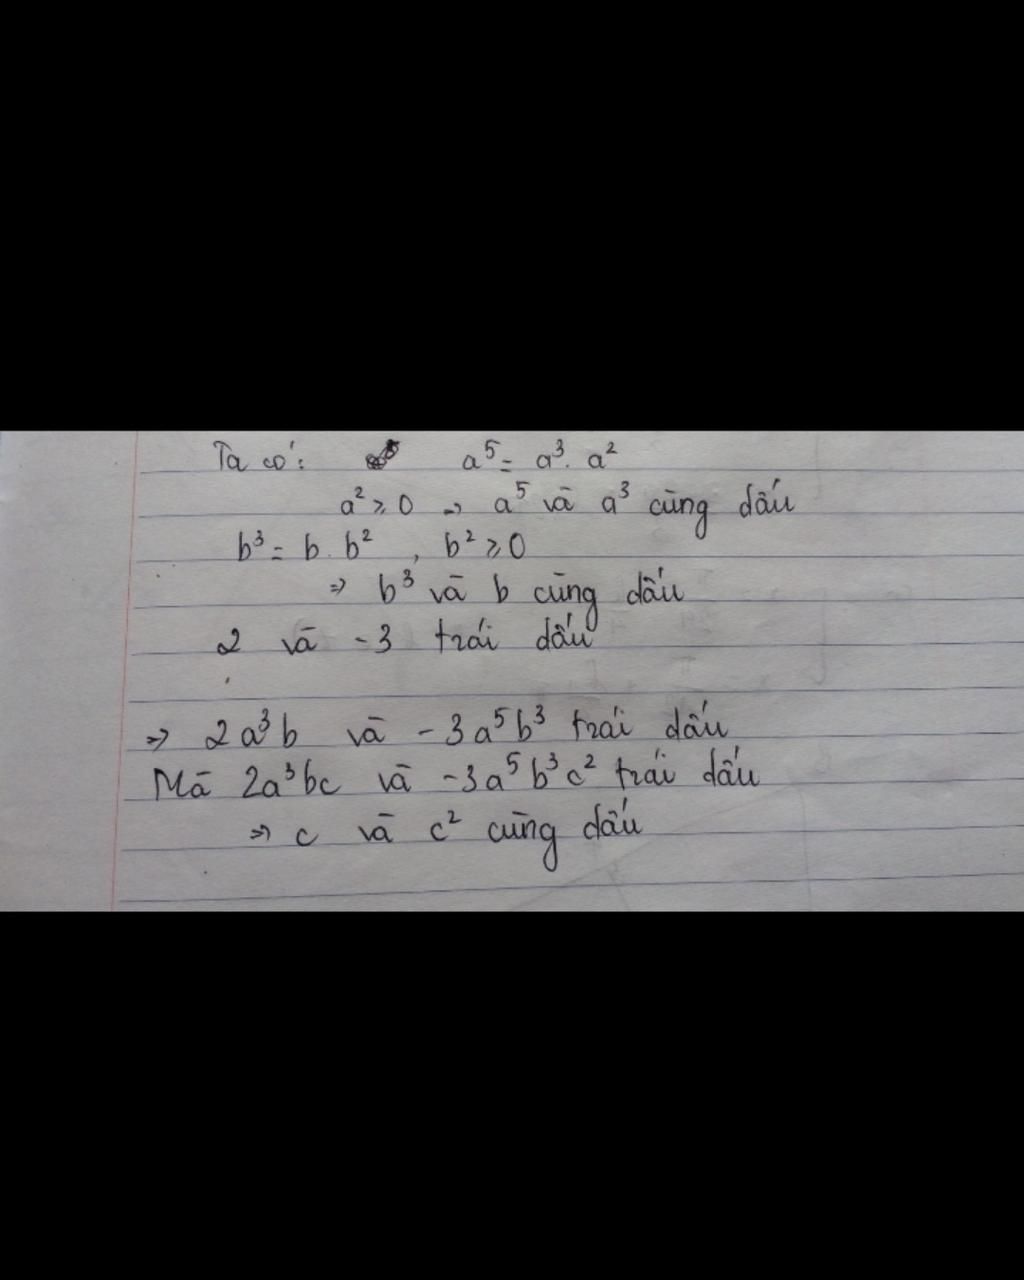 Ta có: a⁵ = a³. a²
a² ≥ 0 → a⁵ và a³ cùng dấu
b³ = b. b² , b² ≥ 0
⇒ b³ và b cùng dấu
2 và -3 trái dấu
⇒ 2a³b và -3a⁵b³ trái dấu
Mà 2a³bc và -3a⁵b³c² trái dấu
⇒ c và c² cùng dấu